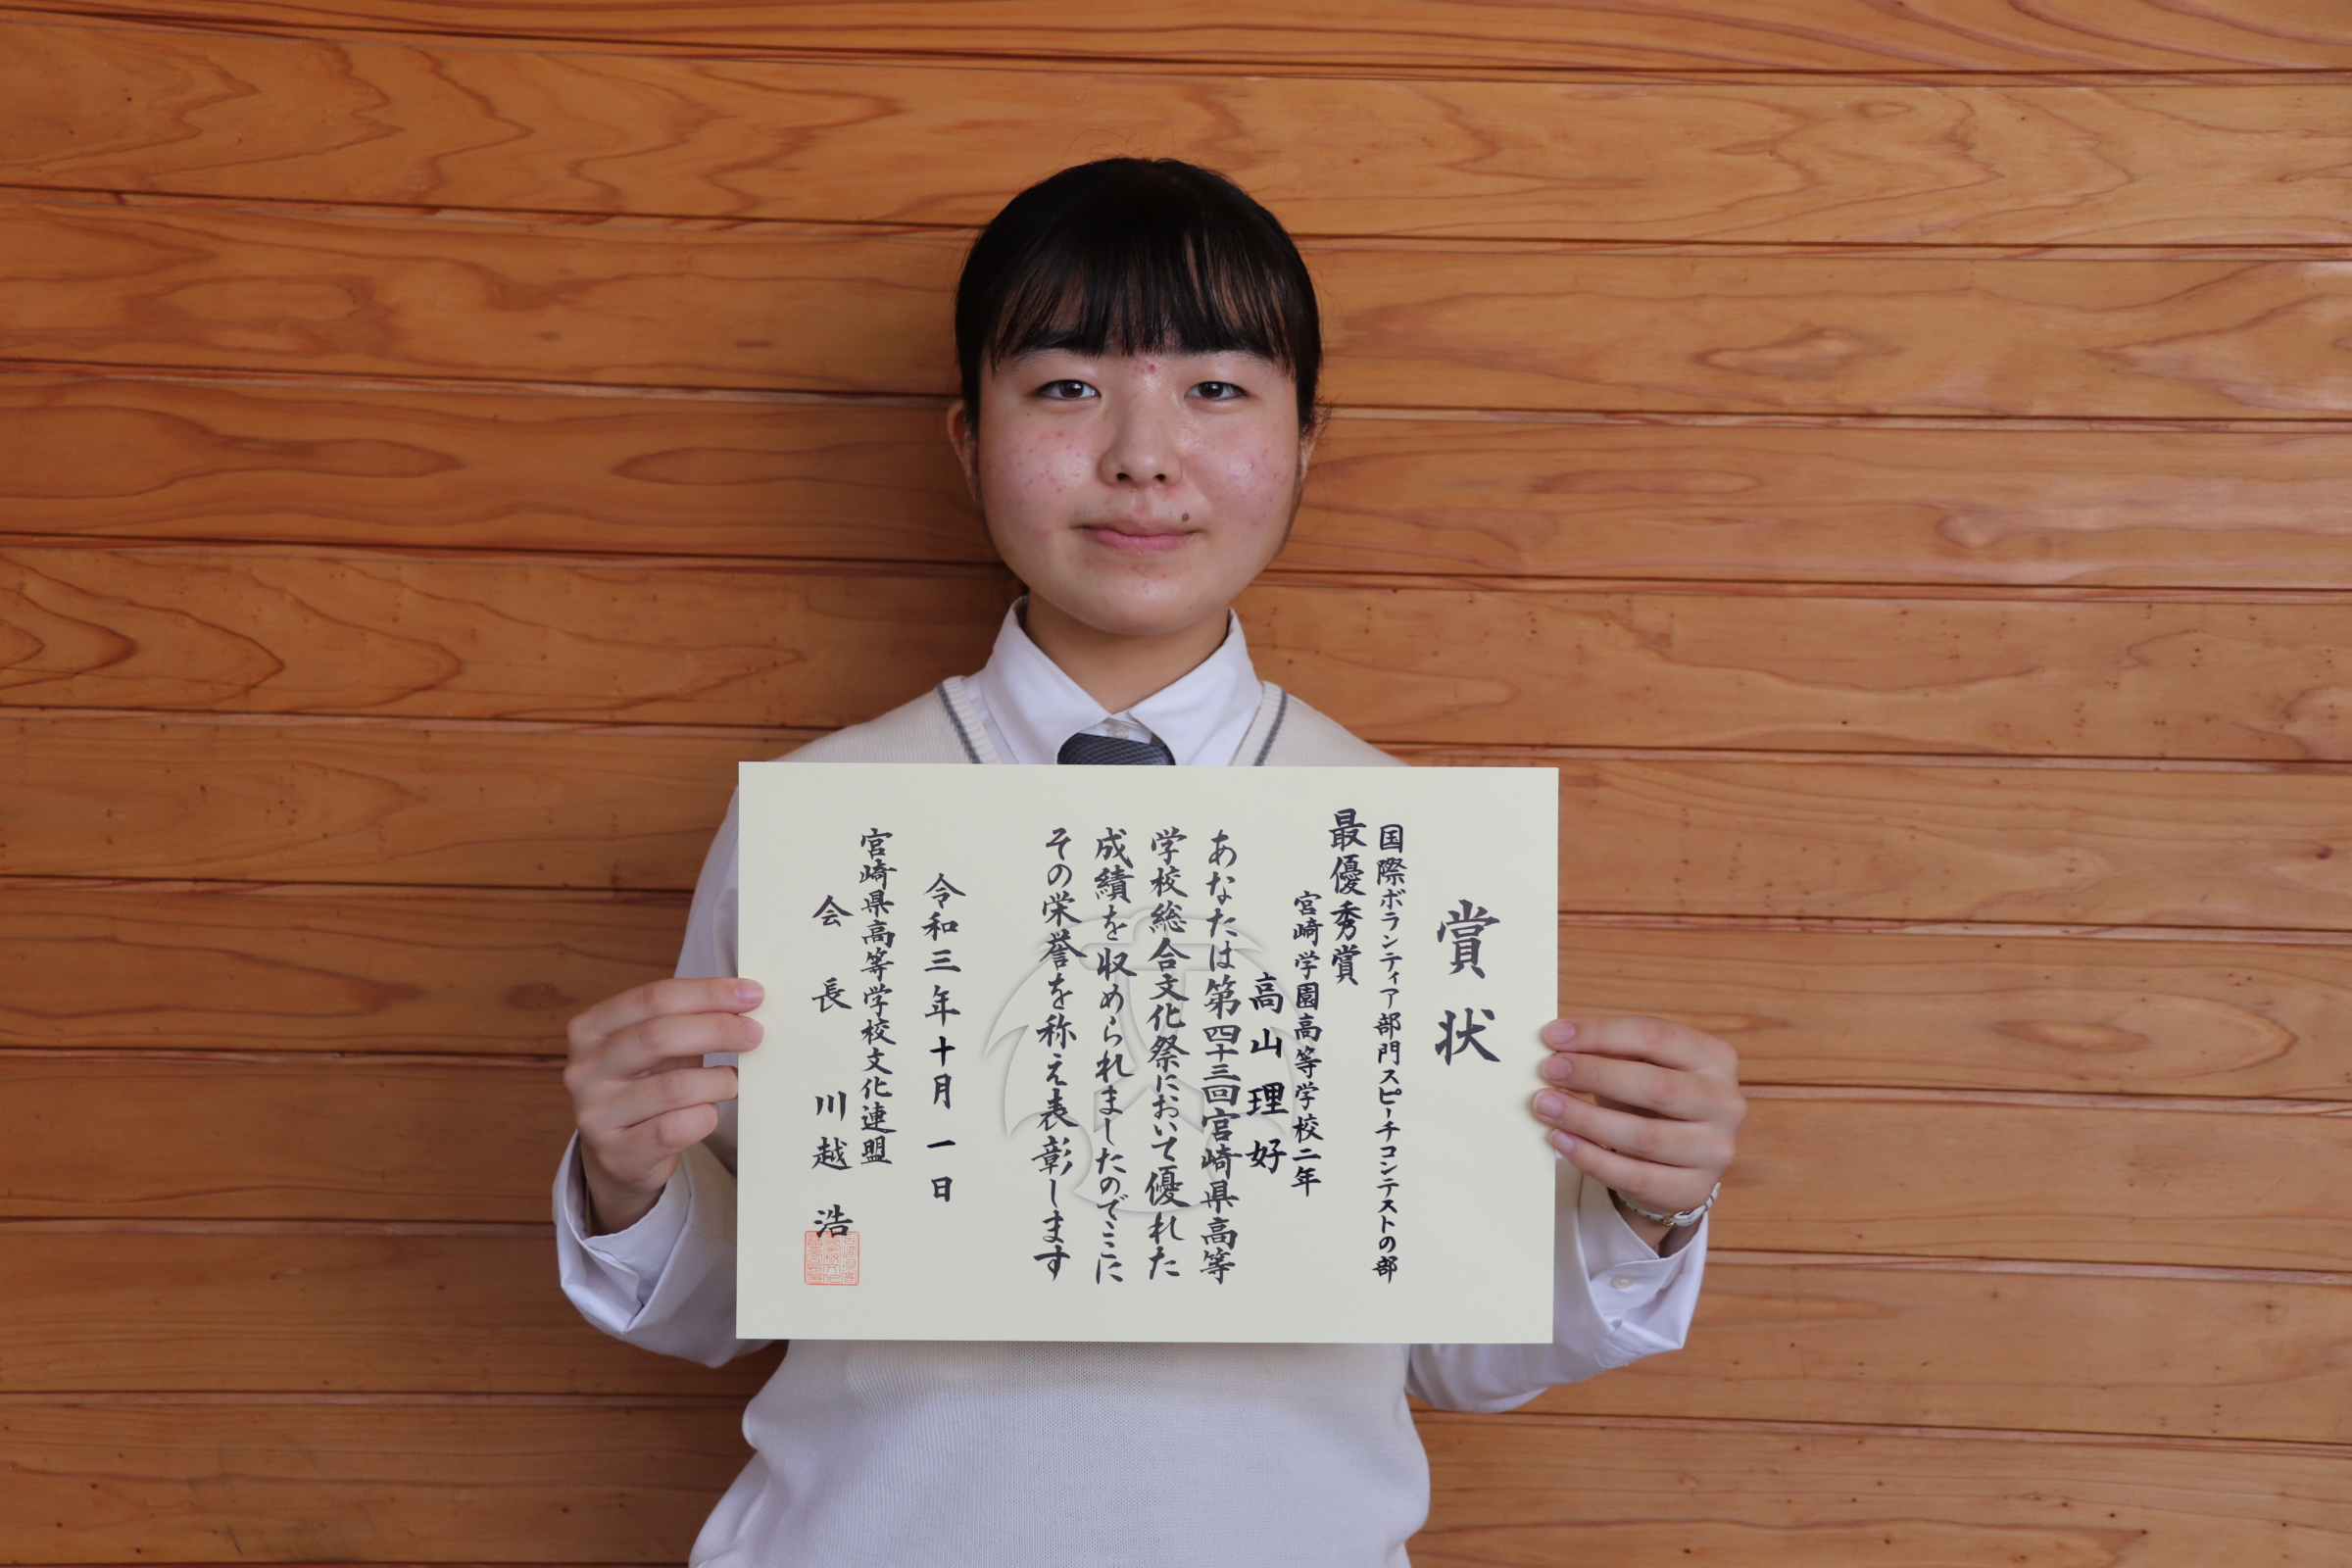 賞状
国際ボランティア部門スピーチコンテストの部
最優秀賞
宮崎学園高等学校二年
高山理好
あなたは第四十三回宮崎県高等
学校総合文化祭において優れた
成績を収められましたのでここに
その栄誉を称え表彰します
令和三年十月一日
宮崎県高等学校文化連盟
会長 川越 浩